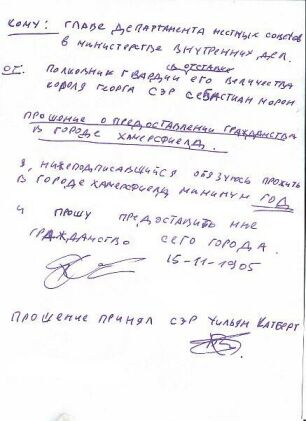 Кому: Главе департамента местных советов
в министерстве внутренних дел.
в отставке
От. Полковник гвардии его величества
короля Георга сэр Себастиан Морон
Прошение о предоставлении гражданства
в городе Хамерсфиелд.
Я, нижеподписавшийся обязуюсь прожить
в городе Хамерсфиелд минимум год
и прошу предоставить мне
гражданство сего города.
15-11-1905
Прошение принял сэр Уильям Катберт